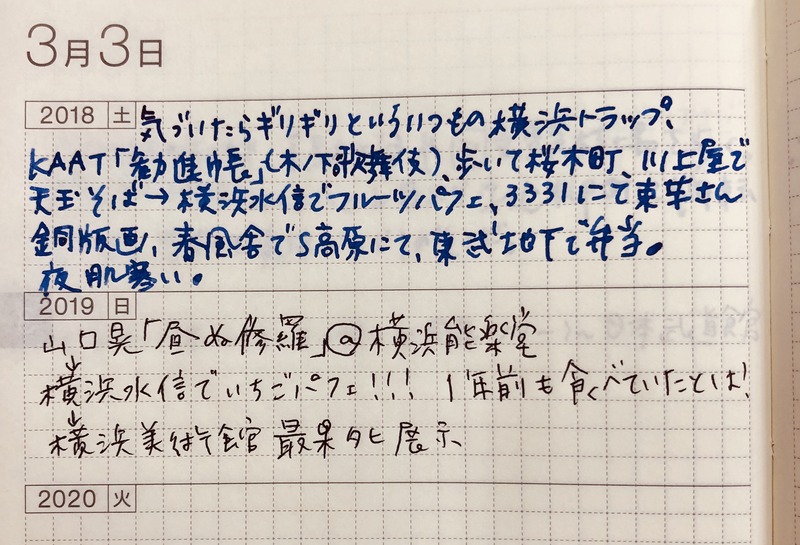 3月3日
2018 土 気づいたらギリギリといういつもの横浜トラップ、
KAAT「勧進帳」(木ノ下歌舞伎)、歩いて桜木町、川上屋で
天玉そば→横浜水信でフルーツパフェ、3331にて東芋さん
銅版画、春風舎でS高原にて、東武地下で弁当。
夜肌寒い。
2019 日
山口晃「昼ぬ修羅」@横浜能楽堂
↓
横浜水信でいちごパフェ!!! 1年前も食べていたとは!
↓
横浜美術館 最果タヒ展示
2020 火